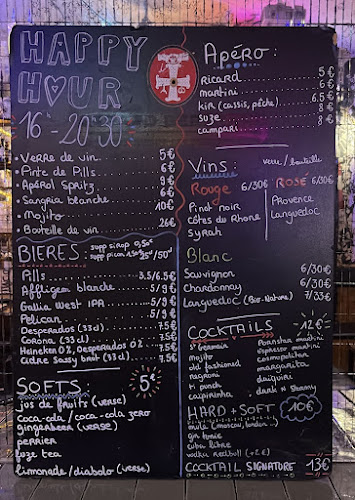 HAPPY
HOUR
16 - 20:30
• Verre de vin 5€
• Pinte de Pills 6€
• Apérol Spritz 9€
• Sangria blanche 6€
• Mojito 10€
• Bouteille de vin 26€
BIERES: supp sirop 0,50€
supp picon 25/50
Pills 3.5/6.5€
Affligem blanche 5/9€
Gallia West IPA 5/9€
Pelican 5/9€
Desperados (33cl) 7.5€
Corona (33cl) 7.5€
Heineken 0%, Desperados 0% 7.5€
Cidre Sassy brut (33cl) 7.5€
SOFTS: 5€
jus de fruits (verse)
coca-cola / coca-cola zero
gingerbeer (verse)
perrier
fuze tea
limonade/diabolo (verse)
Apéro:
Ricard 5€
martini 6€
kir (cassis, pêche) 6.5€
suze 8€
campari 8€
Vins: verre/bouteille
Rouge 6/30€
Pinot noir
Côtes du Rhone
Syrah
ROSÉ 6/30€
Provence
Languedoc
Blanc
Sauvignon 6/30€
Chardonnay 6/30€
Languedoc (Bio-Nature) 7/33€
COCKTAILS - 12€ -
St Germain
mojito
old fashioned
negroni
ti punch
caipirinha
Pornstar martini
espresso martini
cosmopolitan
margarita
daiquiri
dark n stormy
HARD + SOFT 10€
mule (moscow, london...)
gin tonic
cuba libre
vodka redbull (+2€)
COCKTAIL SIGNATURE 13€